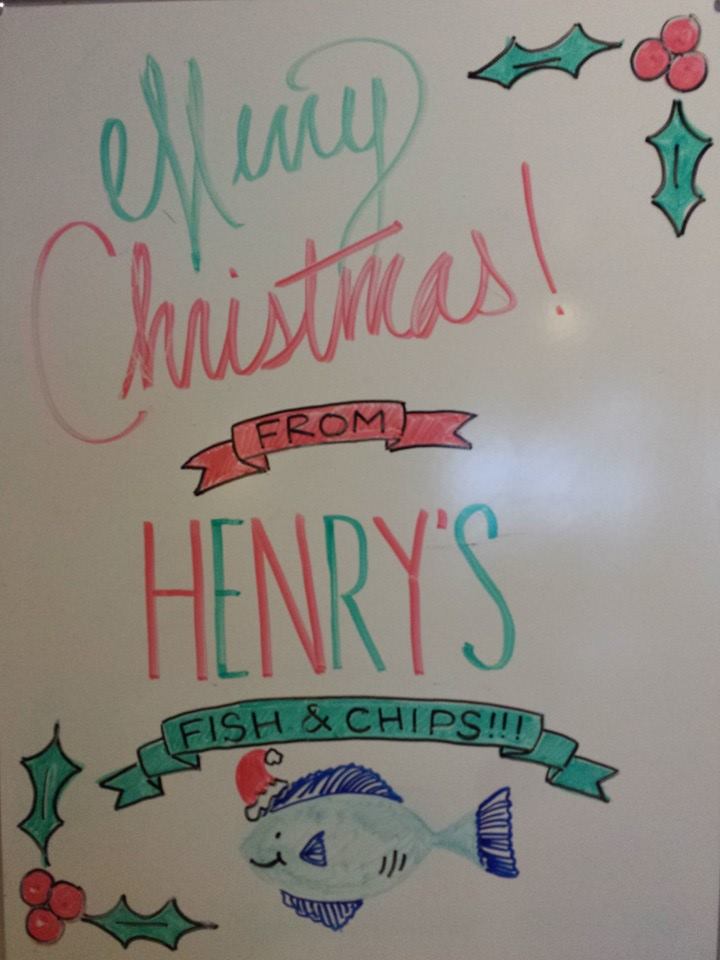 Merry
Christmas!
FROM
HENRY'S
FISH & CHIPS!!!